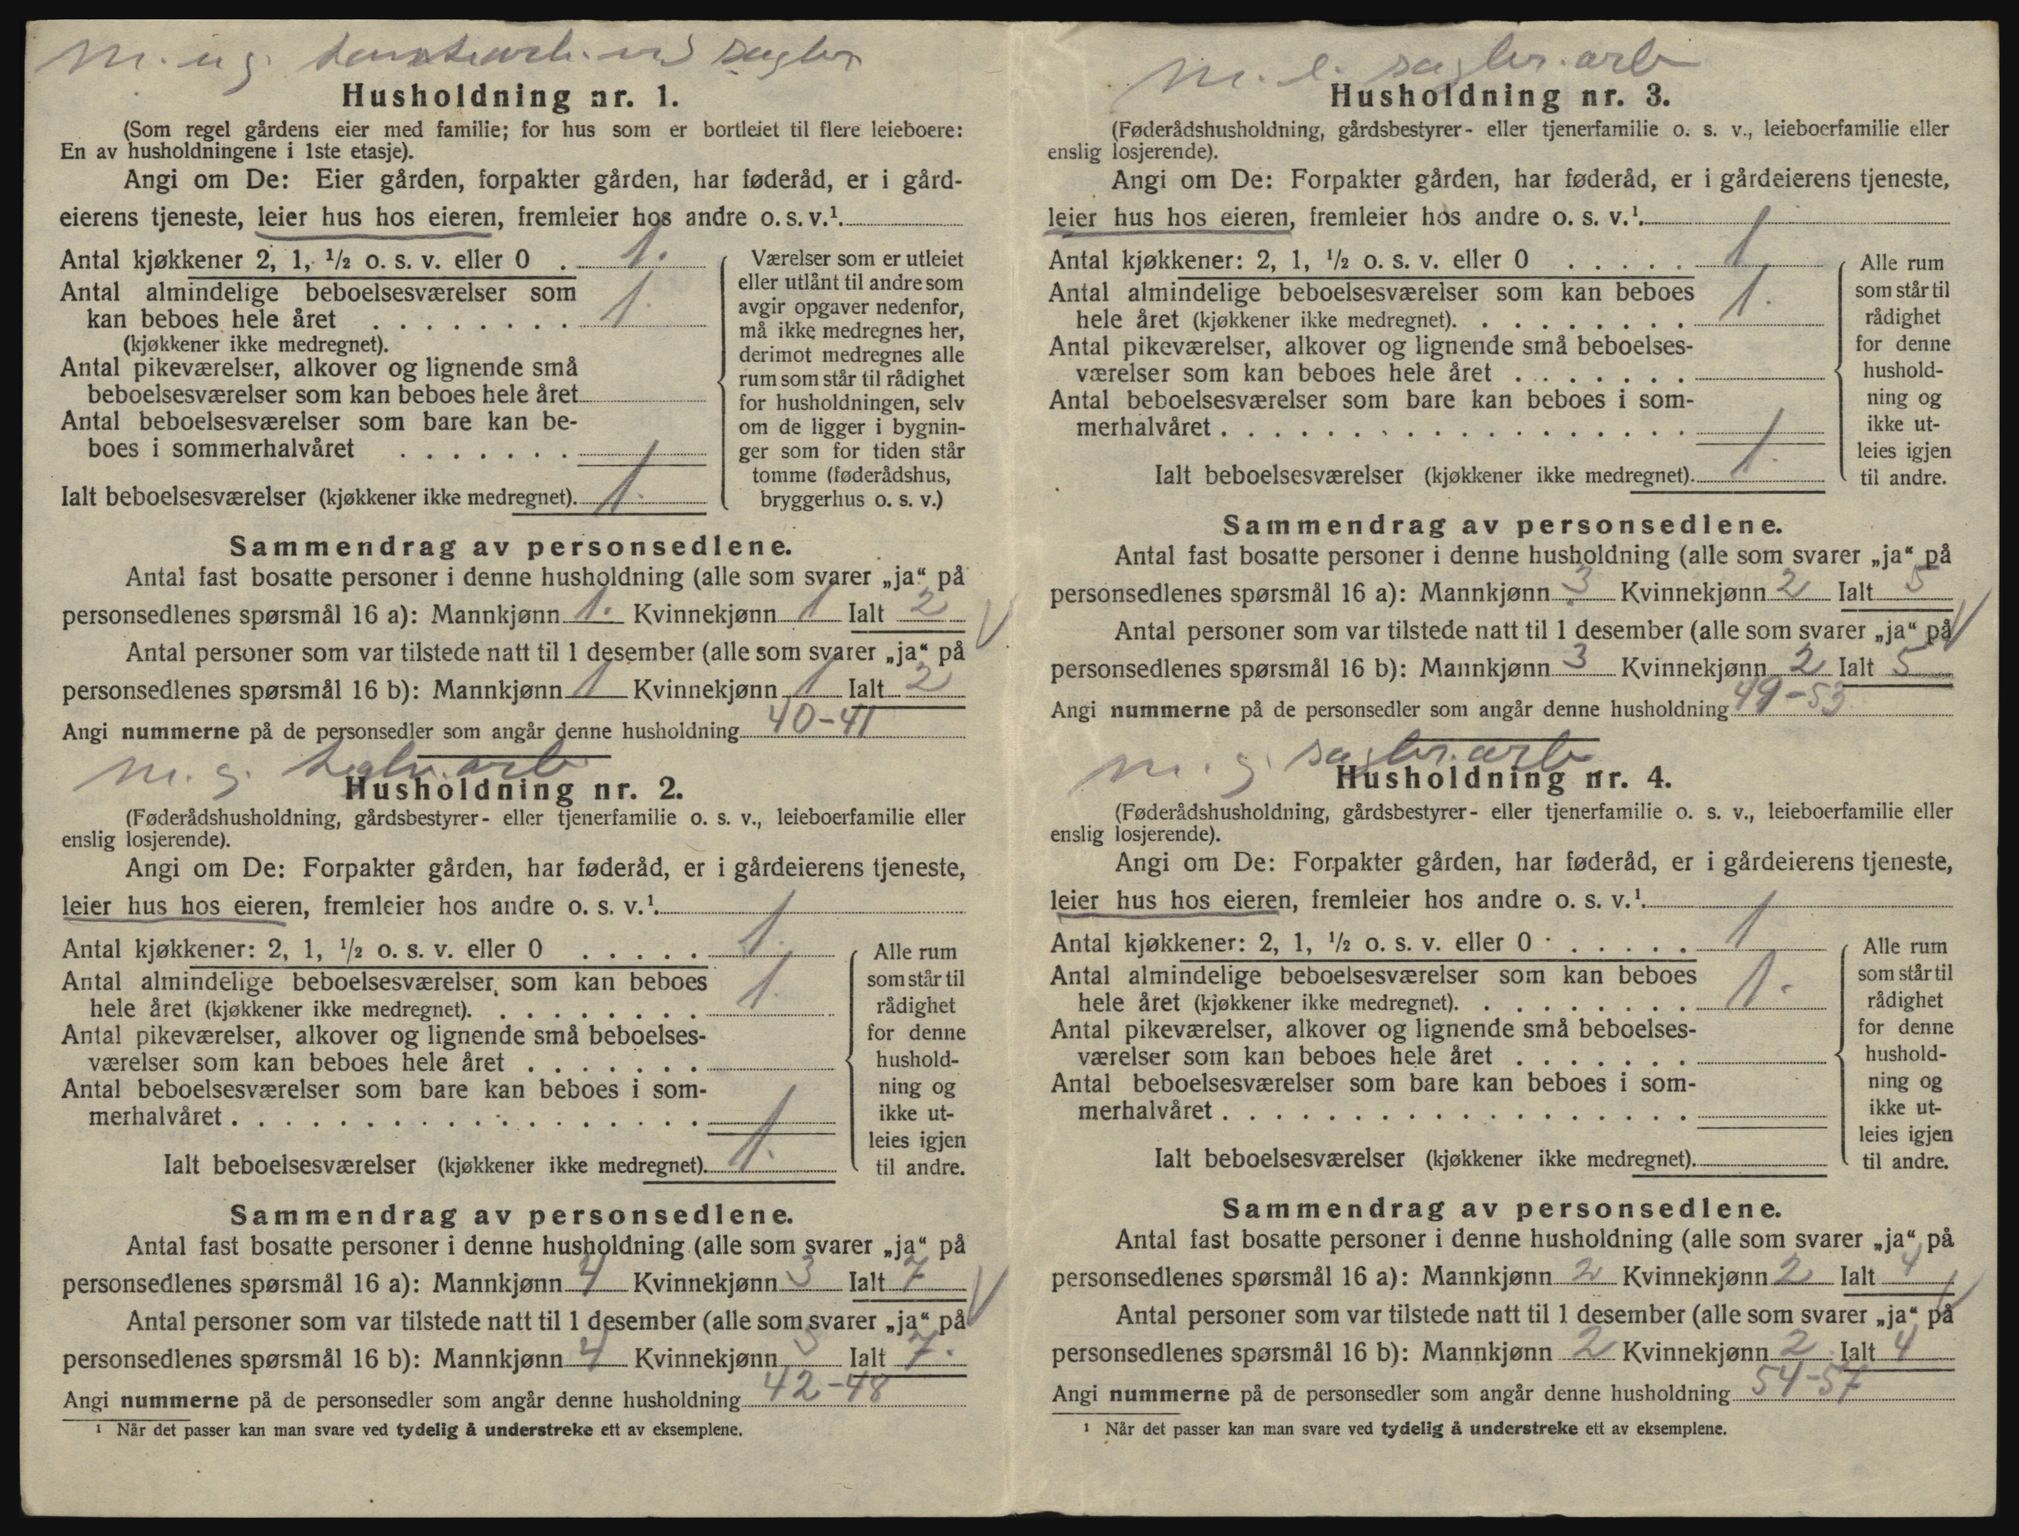 m. ug. tomtearb. ved sagbr.
Husholdning nr. 1.
(Som regel gårdens eier med familie; for hus som er bortleiet til flere leieboere:
En av husholdningene i 1ste etasje).
Angi om De: Eier gården, forpakter gården, har føderåd, er i gård-
eierens tjeneste, leier hus hos eieren, fremleier hos andre o. s. v.¹.
Antal kjøkkener 2, 1, ½ o. s. v. eller 0 . 1.
Antal almindelige beboelsesværelser som
kan beboes hele året . . . . . . . . 1.
(kjøkkener ikke medregnet).
Antal pikeværelser, alkover og lignende små
beboelsesværelser som kan beboes hele året
Antal beboelsesværelser som bare kan be-
boes i sommerhalvåret . . . . . . .
Ialt beboelsesværelser (kjøkkener ikke medregnet). 1.
Værelser som er utleiet
eller utlånt til andre som
avgir opgaver nedenfor,
må ikke medregnes her,
derimot medregnes alle
rum som står til rådighet
for husholdningen, selv
om de ligger i bygnin-
ger som for tiden står
tomme (føderådshus,
bryggerhus o. s. v.)
Sammendrag av personsedlene.
Antal fast bosatte personer i denne husholdning (alle som svarer „ja“ på
personsedlenes spørsmål 16 a): Mannkjønn 1. Kvinnekjønn 1 Ialt 2
Antal personer som var tilstede natt til 1 desember (alle som svarer „ja“ på
personsedlenes spørsmål 16 b): Mannkjønn 1 Kvinnekjønn 1 Ialt 2
Angi nummerne på de personsedler som angår denne husholdning 40-41
m. g. arb
Husholdning nr. 2.
(Føderådshusholdning, gårdsbestyrer- eller tjenerfamilie o. s. v., leieboerfamilie eller
enslig losjerende).
Angi om De: Forpakter gården, har føderåd, er i gårdeierens tjeneste,
leier hus hos eieren, fremleier hos andre o. s. v.¹.
Antal kjøkkener: 2, 1, ½ o. s. v. eller 0 . . . . . 1.
Antal almindelige beboelsesværelser som kan beboes
hele året (kjøkkener ikke medregnet). . . . . . . . . 1.
Antal pikeværelser, alkover og lignende små beboelses-
værelser som kan beboes hele året . . . . . . .
Antal beboelsesværelser som bare kan beboes i som-
merhalvåret . . . . . . . . . . . . . . . . . .
Ialt beboelsesværelser (kjøkkener ikke medregnet). 1.
Alle rum
som står til
rådighet
for denne
hushold-
ning og
ikke ut-
leies igjen
til andre.
Sammendrag av personsedlene.
Antal fast bosatte personer i denne husholdning (alle som svarer „ja“ på
personsedlenes spørsmål 16 a): Mannkjønn 4 Kvinnekjønn 3 Ialt 7
Antal personer som var tilstede natt til 1 desember (alle som svarer „ja“ på
personsedlenes spørsmål 16 b): Mannkjønn 4 Kvinnekjønn 3 Ialt 7.
Angi nummerne på de personsedler som angår denne husholdning 42-48
¹ Når det passer kan man svare ved tydelig å understreke ett av eksemplene.
m. e. sagbr. arb
Husholdning nr. 3.
(Føderådshusholdning, gårdsbestyrer- eller tjenerfamilie o. s. v., leieboerfamilie eller
enslig losjerende).
Angi om De: Forpakter gården, har føderåd, er i gårdeierens tjeneste,
leier hus hos eieren, fremleier hos andre o. s. v.¹.
Antal kjøkkener: 2, 1, ½ o. s. v. eller 0 . . . . . 1
Antal almindelige beboelsesværelser som kan beboes
hele året (kjøkkener ikke medregnet). . . . . . . . . 1.
Antal pikeværelser, alkover og lignende små beboelses-
værelser som kan beboes hele året . . . . . . .
Antal beboelsesværelser som bare kan beboes i som-
merhalvåret . . . . . . . . . . . . . . . . . .
Ialt beboelsesværelser (kjøkkener ikke medregnet). 1.
Alle rum
som står til
rådighet
for denne
hushold-
ning og
ikke ut-
leies igjen
til andre.
Sammendrag av personsedlene.
Antal fast bosatte personer i denne husholdning (alle som svarer „ja“ på
personsedlenes spørsmål 16 a): Mannkjønn 3 Kvinnekjønn 2 Ialt 5
Antal personer som var tilstede natt til 1 desember (alle som svarer „ja“ på
personsedlenes spørsmål 16 b): Mannkjønn 3 Kvinnekjønn 2 Ialt 5
Angi nummerne på de personsedler som angår denne husholdning 49-53
m. g. sagbr. arb
Husholdning nr. 4.
(Føderådshusholdning, gårdsbestyrer- eller tjenerfamilie o. s. v., leieboerfamilie eller
enslig losjerende).
Angi om De: Forpakter gården, har føderåd, er i gårdeierens tjeneste,
leier hus hos eieren, fremleier hos andre o. s. v.¹.
Antal kjøkkener: 2, 1, ½ o. s. v. eller 0 . . . . . 1
Antal almindelige beboelsesværelser som kan beboes
hele året (kjøkkener ikke medregnet). . . . . . . . . 1.
Antal pikeværelser, alkover og lignende små beboelses-
værelser som kan beboes hele året . . . . . . .
Antal beboelsesværelser som bare kan beboes i som-
merhalvåret . . . . . . . . . . . . . . . . . .
Ialt beboelsesværelser (kjøkkener ikke medregnet).
Alle rum
som står til
rådighet
for denne
hushold-
ning og
ikke ut-
leies igjen
til andre.
Sammendrag av personsedlene.
Antal fast bosatte personer i denne husholdning (alle som svarer „ja“ på
personsedlenes spørsmål 16 a): Mannkjønn 2 Kvinnekjønn 2 Ialt 4
Antal personer som var tilstede natt til 1 desember (alle som svarer „ja“ på
personsedlenes spørsmål 16 b): Mannkjønn 2 Kvinnekjønn 2 Ialt 4
Angi nummerne på de personsedler som angår denne husholdning 54-57
¹ Når det passer kan man svare ved tydelig å understreke ett av eksemplene.